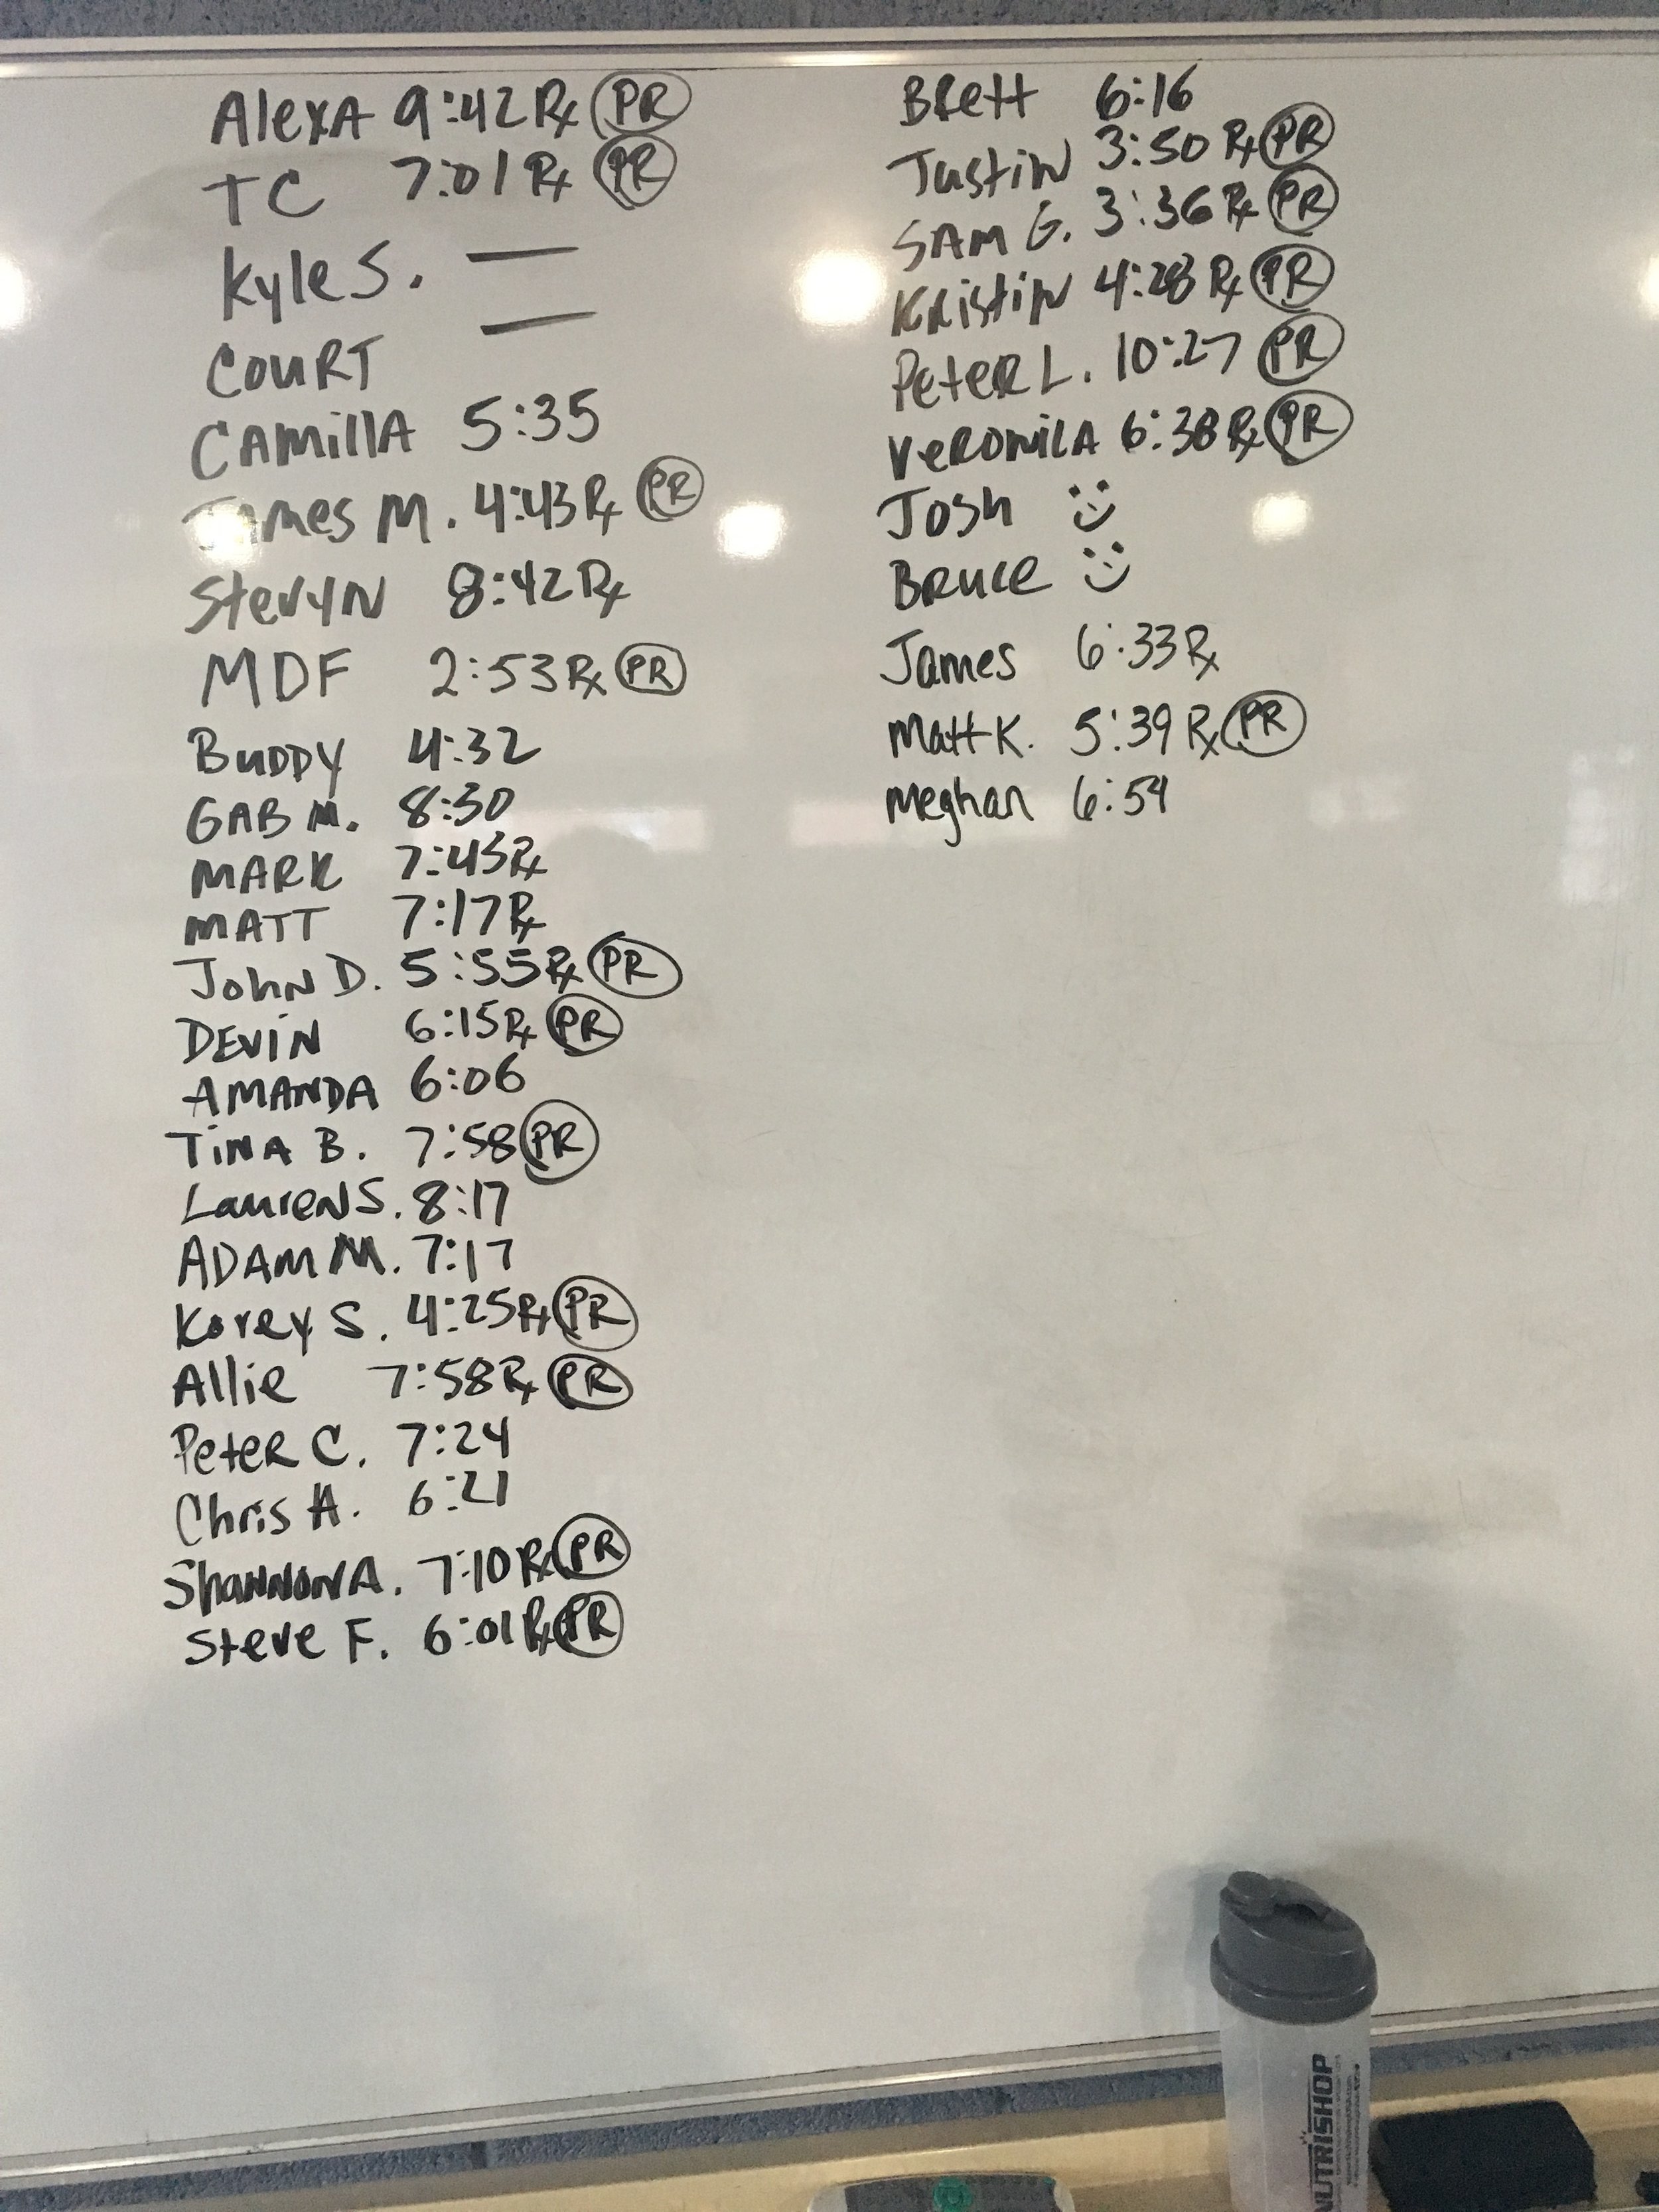 Alexa 9:42 Rx PR
TC 7:01 Rx PR
Kyle S. —
COURT —
CAMillA 5:35
James M. 4:43 Rx PR
StevyN 8:42 Rx
MDF 2:53 Rx PR
BUDDY 4:32
GAB M. 8:30
MARK 7:43 Rx
MATT 7:17 Rx
JohN D. 5:55 Rx PR
DEVIN 6:15 Rx PR
AMANDA 6:06
TiNA B. 7:58 PR
LaureN S. 8:17
ADAM M. 7:17
Korey S. 4:25 Rx PR
Allie 7:58 Rx PR
PeteR C. 7:24
Chris H. 6:21
ShaNNoN A. 7:10 Rx PR
Steve F. 6:01 Rx PR
BRett 6:16
JustiN 3:50 Rx PR
SAM G. 3:36 Rx PR
KRistiN 4:28 Rx PR
PeteR L. 10:27 PR
VeRONiCA 6:38 Rx PR
Josh :)
BRuce :)
James 6:33 Rx
Matt K. 5:39 Rx PR
Meghan 6:54
NUTRISHOP